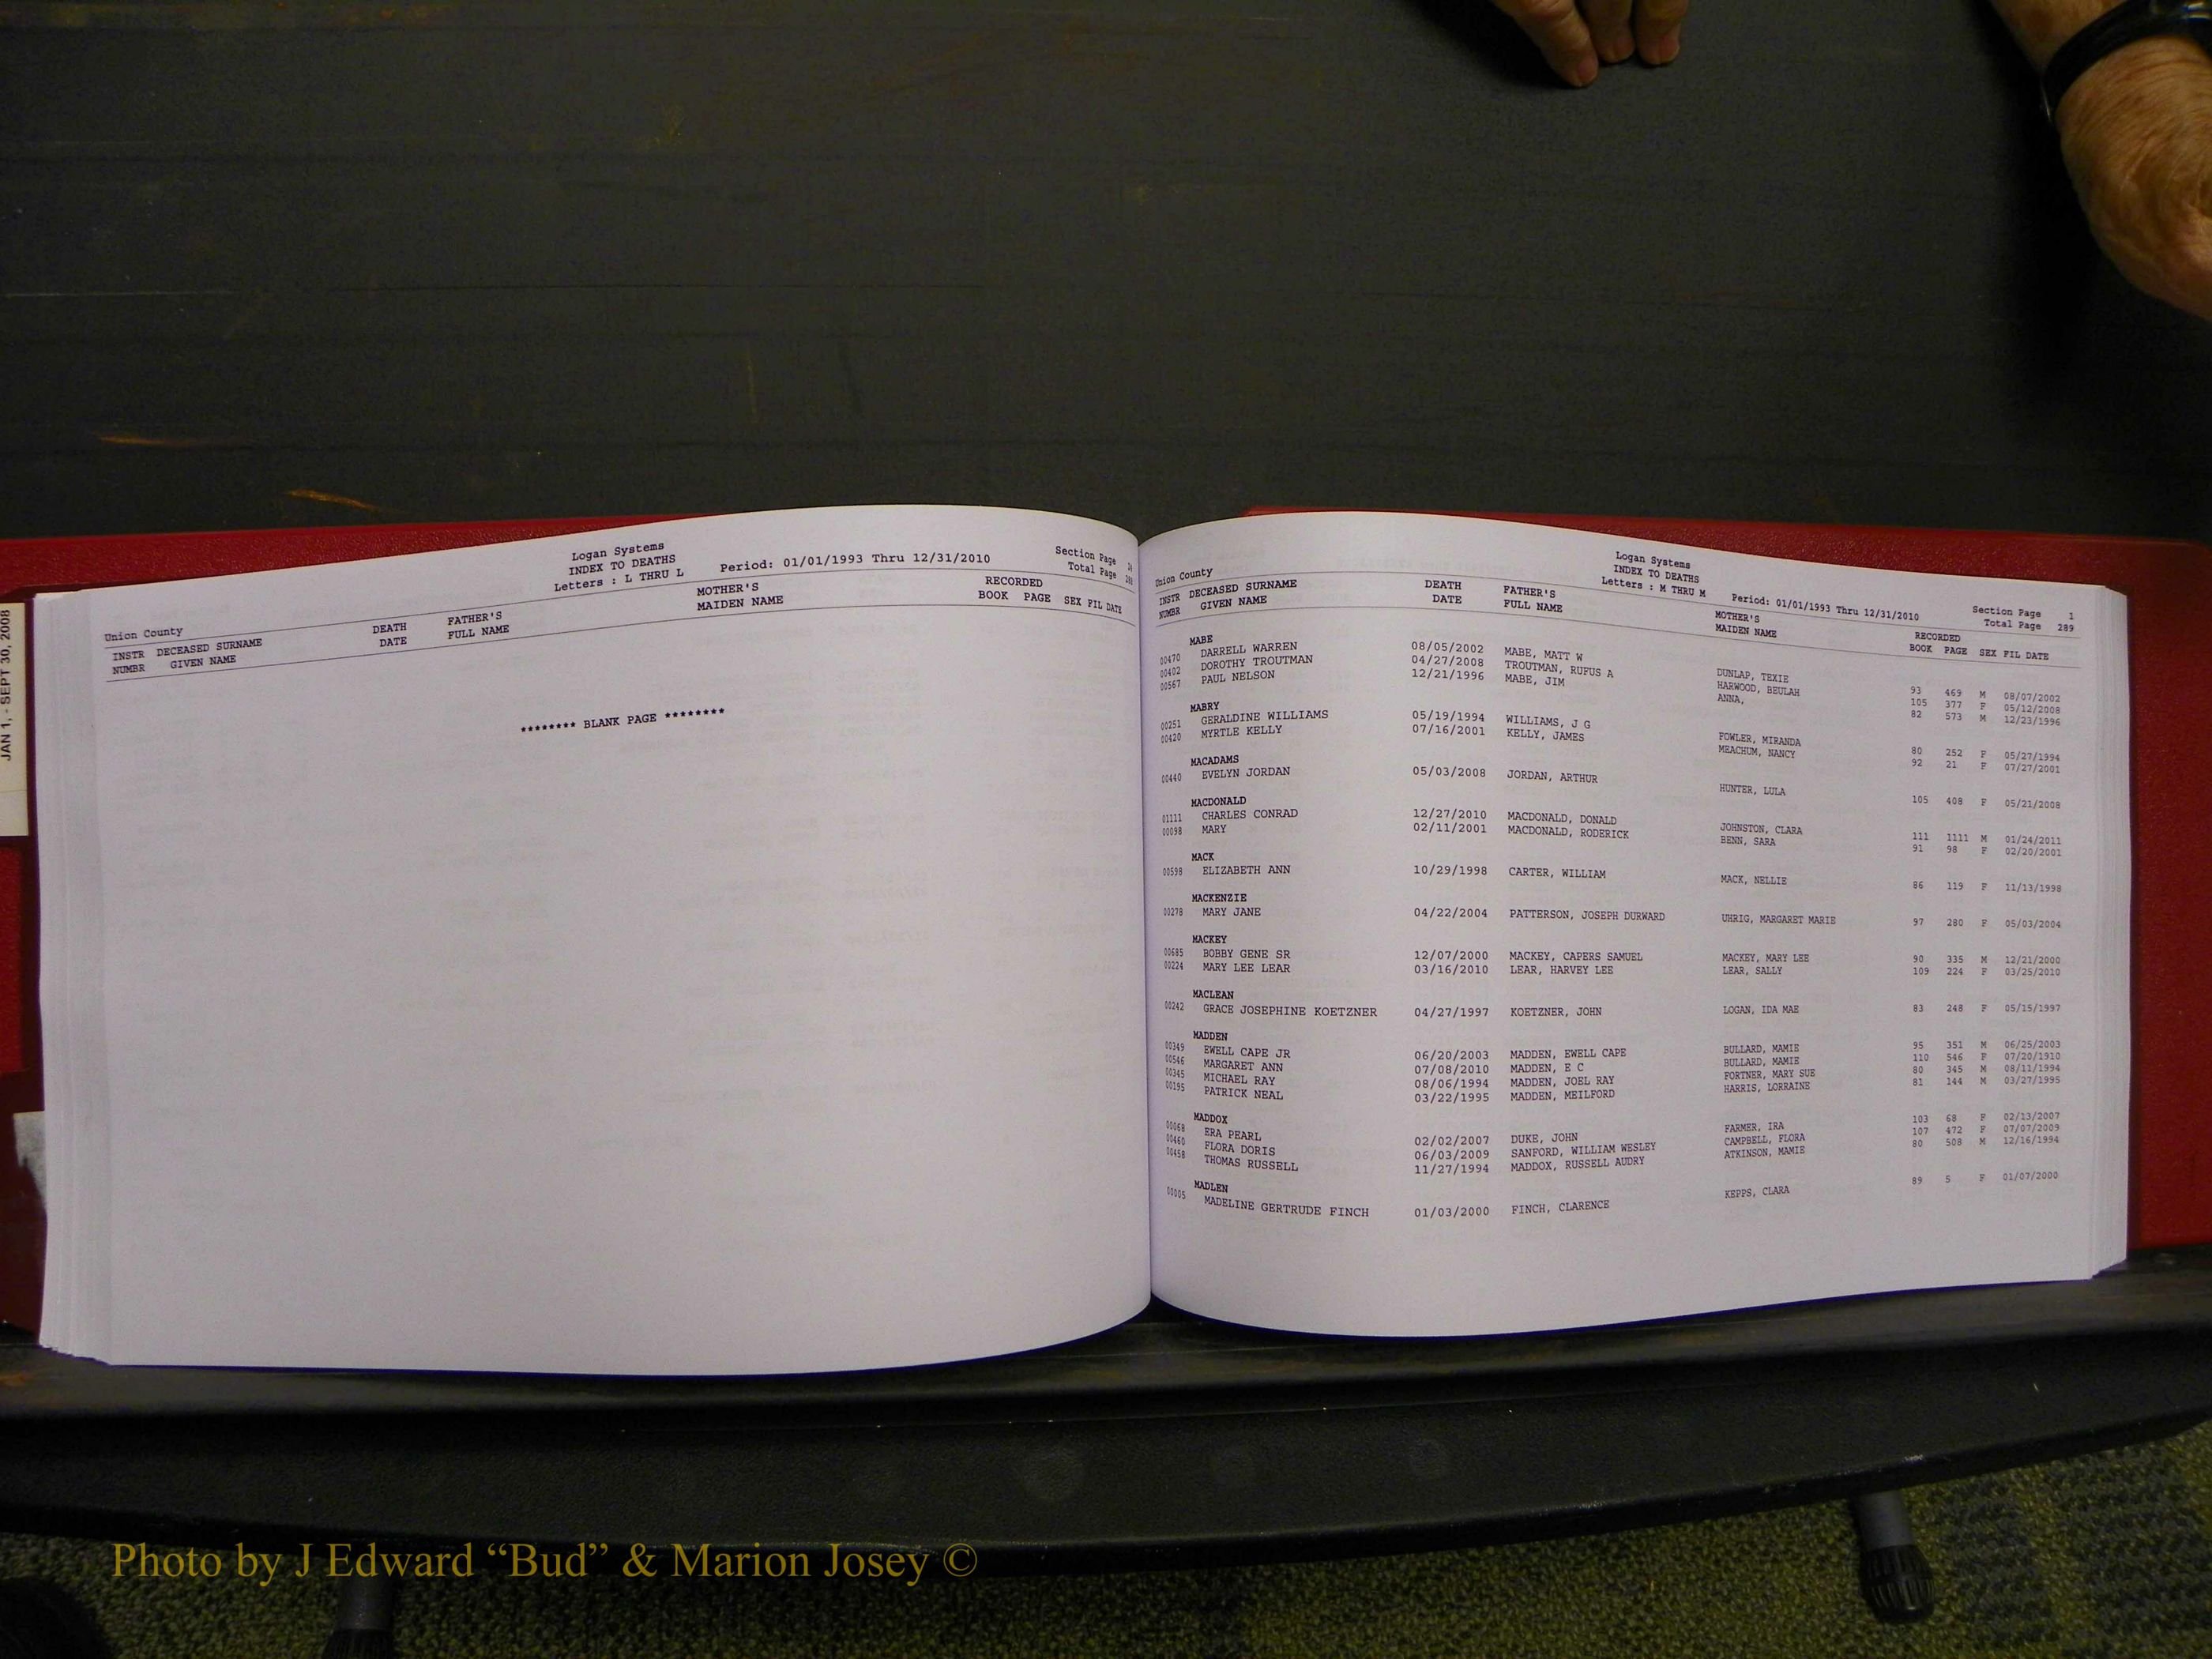 JAN 1, - SEPT 30, 2008
Logan Systems
INDEX TO DEATHS
Letters : L THRU L Period: 01/01/1993 Thru 12/31/2010
Section Page
Total Page
Union County
INSTR DECEASED SURNAME DEATH FATHER'S MOTHER'S RECORDED
NUMBR GIVEN NAME DATE FULL NAME MAIDEN NAME BOOK PAGE SEX FIL DATE
******** BLANK PAGE ********
Logan Systems
INDEX TO DEATHS
Letters : M THRU M Period: 01/01/1993 Thru 12/31/2010
Section Page 1
Total Page 289
Union County
INSTR DECEASED SURNAME DEATH FATHER'S MOTHER'S RECORDED
NUMBR GIVEN NAME DATE FULL NAME MAIDEN NAME BOOK PAGE SEX FIL DATE
MABE
00470 DARRELL WARREN 08/05/2002 MABE, MATT W DUNLAP, TEXIE 93 469 M 08/07/2002
00402 DOROTHY TROUTMAN 04/27/2008 TROUTMAN, RUFUS A HARWOOD, BEULAH 105 377 F 05/12/2008
00567 PAUL NELSON 12/21/1996 MABE, JIM ANNA, 82 573 M 12/23/1996
MABRY
00251 GERALDINE WILLIAMS 05/19/1994 WILLIAMS, J G FOWLER, MIRANDA 80 252 F 05/27/1994
00420 MYRTLE KELLY 07/16/2001 KELLY, JAMES MEACHUM, NANCY 92 21 F 07/27/2001
MACADAMS
00440 EVELYN JORDAN 05/03/2008 JORDAN, ARTHUR HUNTER, LULA 105 408 F 05/21/2008
MACDONALD
01111 CHARLES CONRAD 12/27/2010 MACDONALD, DONALD JOHNSTON, CLARA 111 1111 M 01/24/2011
00098 MARY 02/11/2001 MACDONALD, RODERICK BENN, SARA 91 98 F 02/20/2001
MACK
00598 ELIZABETH ANN 10/29/1998 CARTER, WILLIAM MACK, NELLIE 86 119 F 11/13/1998
MACKENZIE
00278 MARY JANE 04/22/2004 PATTERSON, JOSEPH DURWARD UHRIG, MARGARET MARIE 97 280 F 05/03/2004
MACKEY
00685 BOBBY GENE SR 12/07/2000 MACKEY, CAPERS SAMUEL MACKEY, MARY LEE 90 335 M 12/21/2000
00224 MARY LEE LEAR 03/16/2010 LEAR, HARVEY LEE LEAR, SALLY 109 224 F 03/25/2010
MACLEAN
00242 GRACE JOSEPHINE KOETZNER 04/27/1997 KOETZNER, JOHN LOGAN, IDA MAE 83 248 F 05/15/1997
MADDEN
00349 EWELL CAPE JR 06/20/2003 MADDEN, EWELL CAPE BULLARD, MAMIE 95 351 M 06/25/2003
00546 MARGARET ANN 07/08/2010 MADDEN, E C BULLARD, MAMIE 110 546 F 07/20/1910
00345 MICHAEL RAY 08/06/1994 MADDEN, JOEL RAY FORTNER, MARY SUE 80 345 M 08/11/1994
00195 PATRICK NEAL 03/22/1995 MADDEN, MEILFORD HARRIS, LORRAINE 81 144 M 03/27/1995
MADDOX
00068 ERA PEARL 02/02/2007 DUKE, JOHN FARMER, IRA 103 68 F 02/13/2007
00460 FLORA DORIS 06/03/2009 SANFORD, WILLIAM WESLEY CAMPBELL, FLORA 107 472 F 07/07/2009
00458 THOMAS RUSSELL 11/27/1994 MADDOX, RUSSELL AUDRY ATKINSON, MAMIE 80 508 M 12/16/1994
MADLEN
00005 MADELINE GERTRUDE FINCH 01/03/2000 FINCH, CLARENCE KEPPS, CLARA 89 5 F 01/07/2000
Photo by J Edward “Bud” & Marion Josey ©